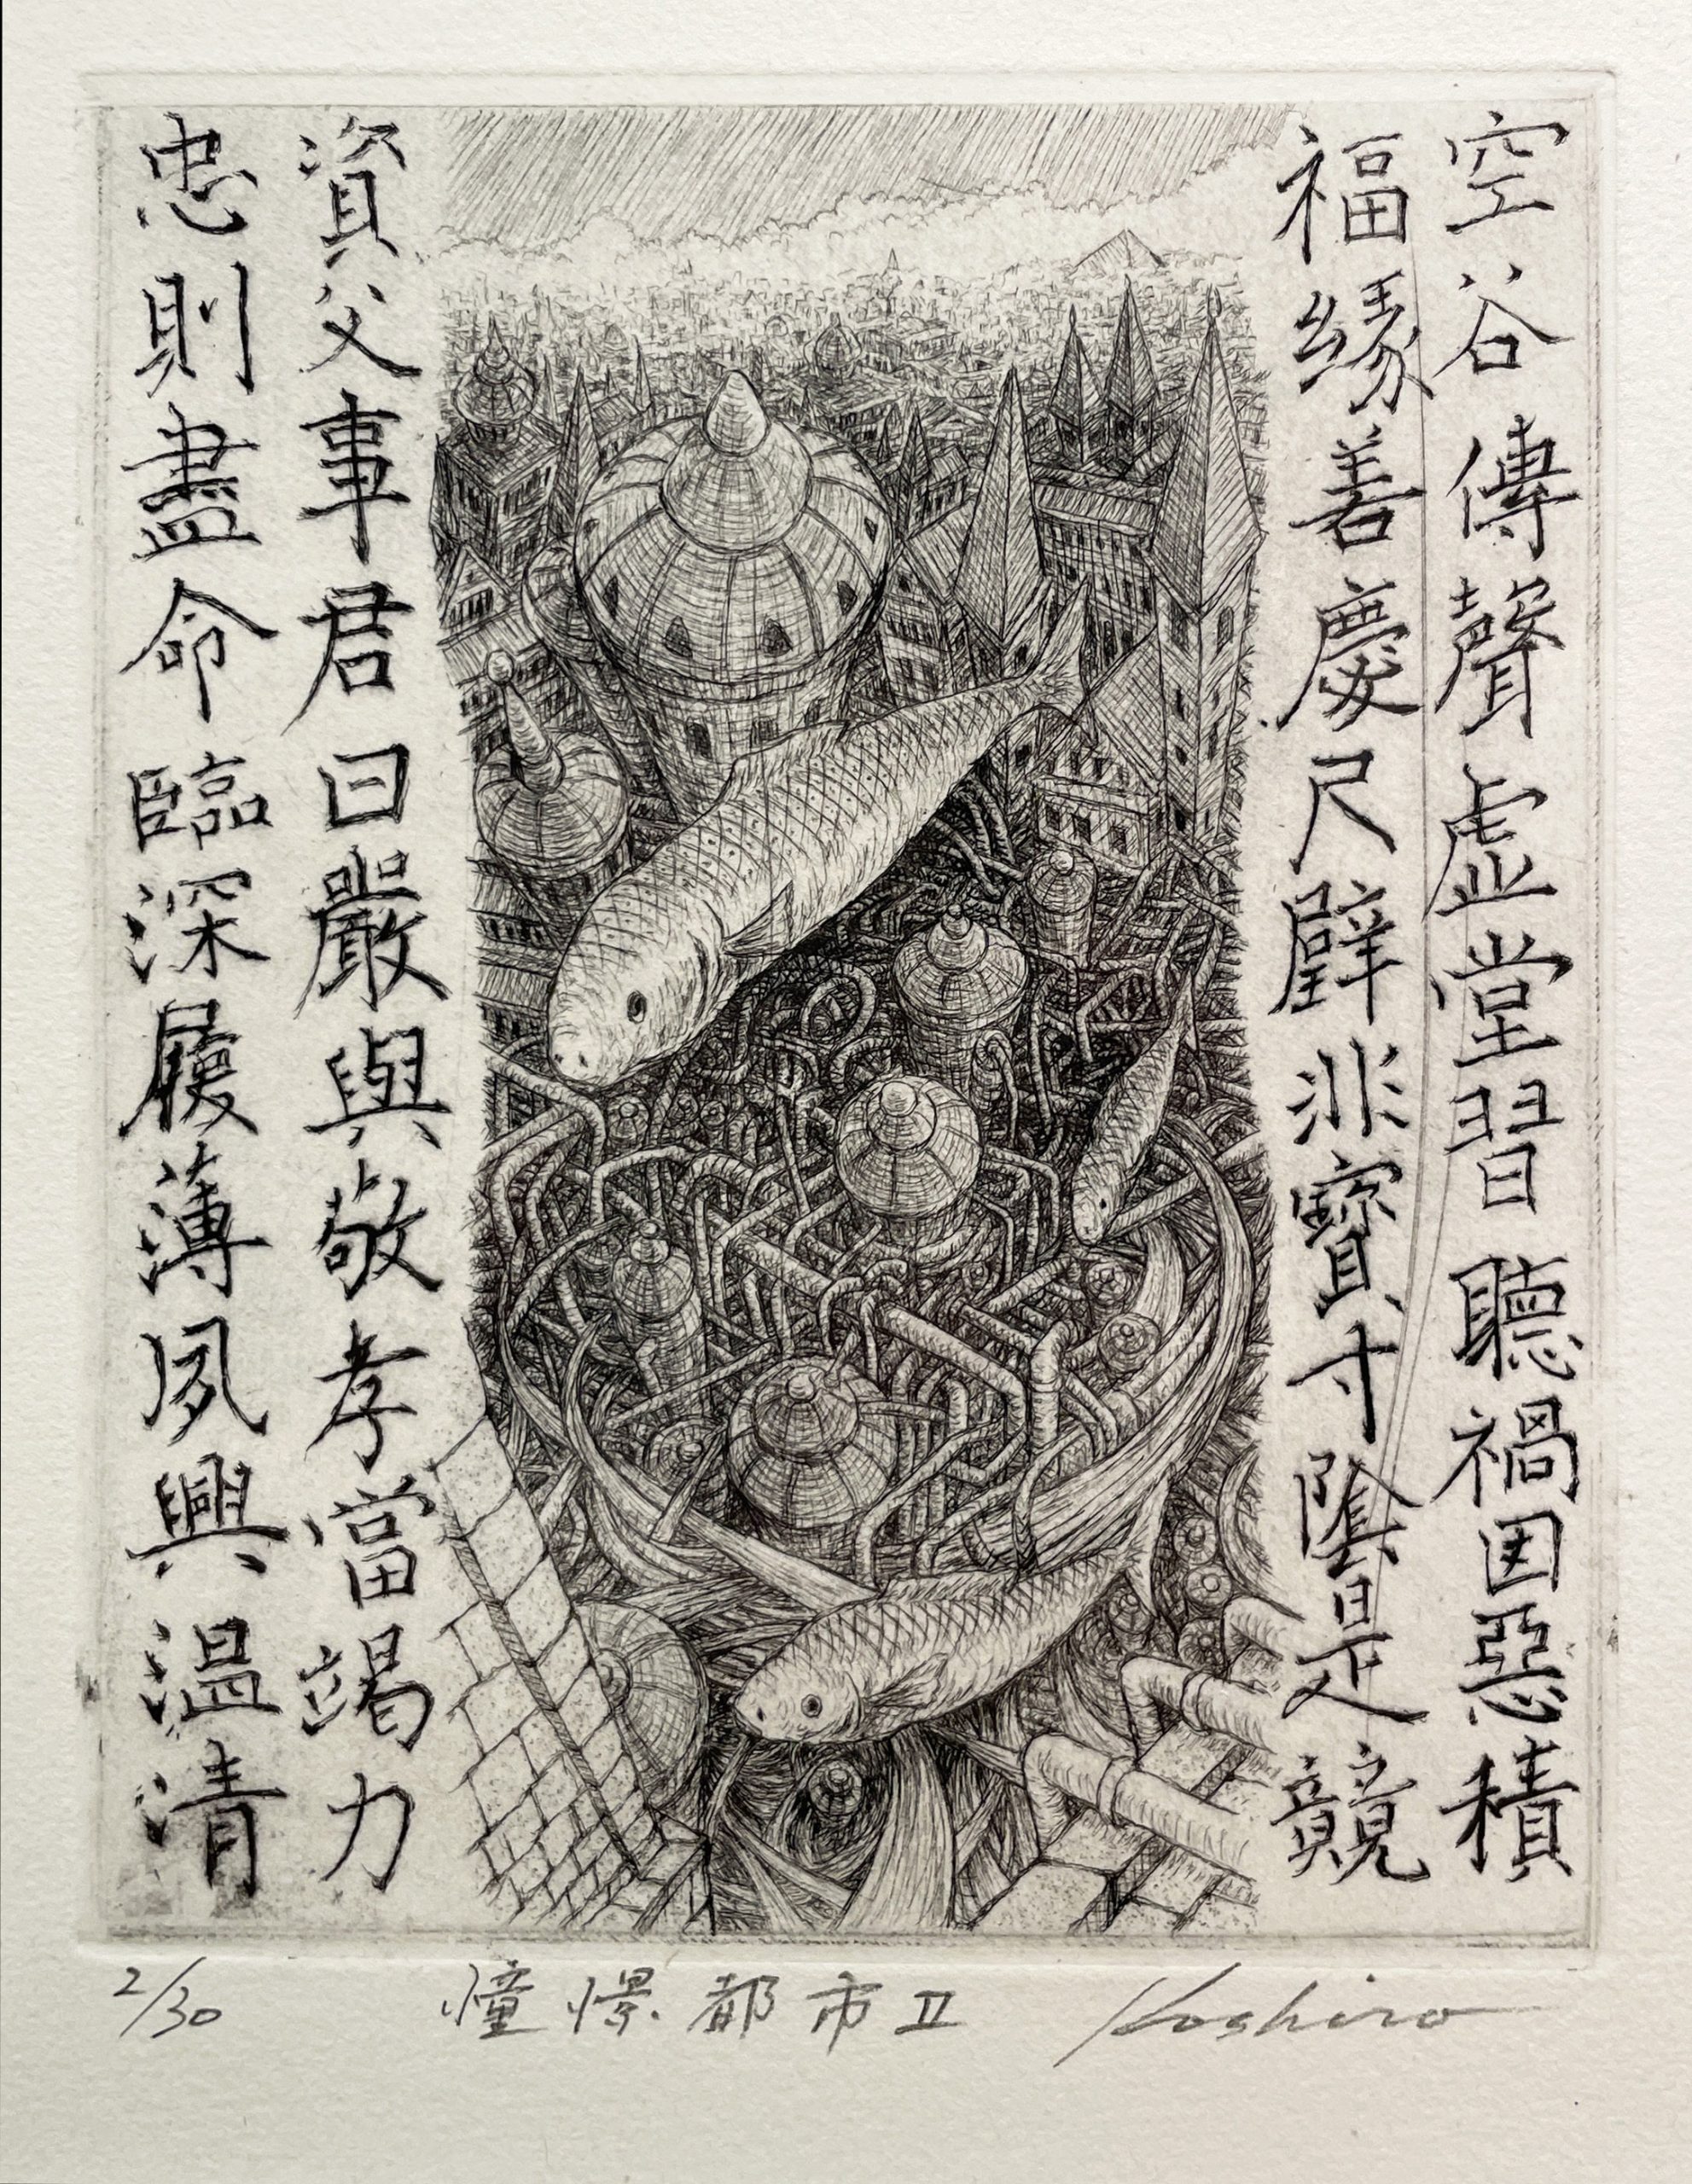 空谷傳聲虚堂習聽禍因惡積
福緣善慶尺璧非寶寸陰是競
資父事君曰嚴與敬孝當竭力
忠則盡命臨深履薄夙興温清
2/30 憧憬都市II Koshiro